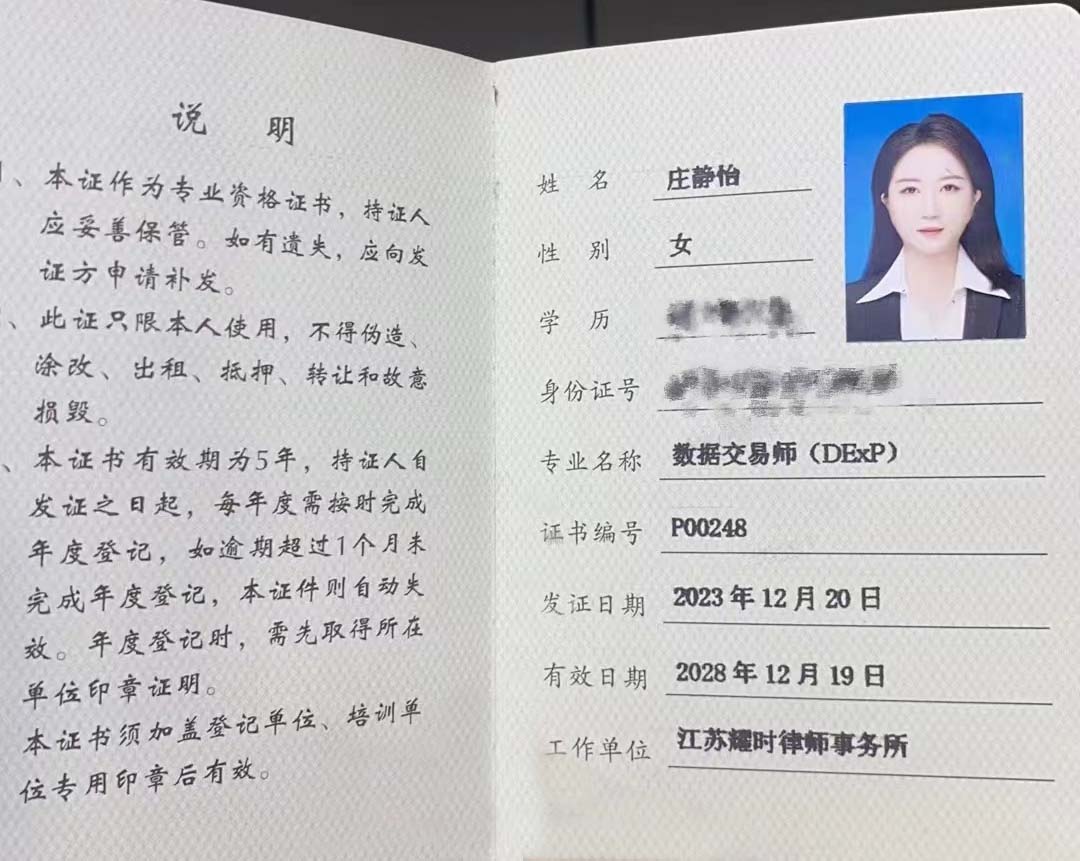 说 明
、本证作为专业资格证书，持证人
应妥善保管。如有遗失，应向发
证方申请补发。
、此证只限本人使用，不得伪造、
涂改、出租、抵押、转让和故意
损毁。
、本证书有效期为5年，持证人自
发证之日起，每年度需按时完成
年度登记，如逾期超过1个月未
完成年度登记，本证件则自动失
效。年度登记时，需先取得所在
单位印章证明。
本证书须加盖登记单位、培训单
位专用印章后有效。
姓 名 庄静怡
性 别 女
学 历
身份证号
专业名称 数据交易师（DExP）
证书编号 P00248
发证日期 2023 年 12 月 20 日
有效日期 2028 年 12 月 19 日
工作单位 江苏耀时律师事务所